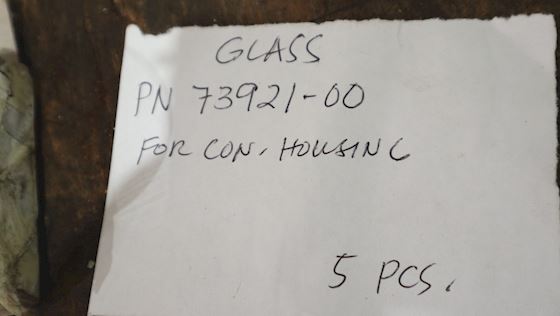 GLASS
PN 73921-00
FOR CON. HOUSING
5 PCS.